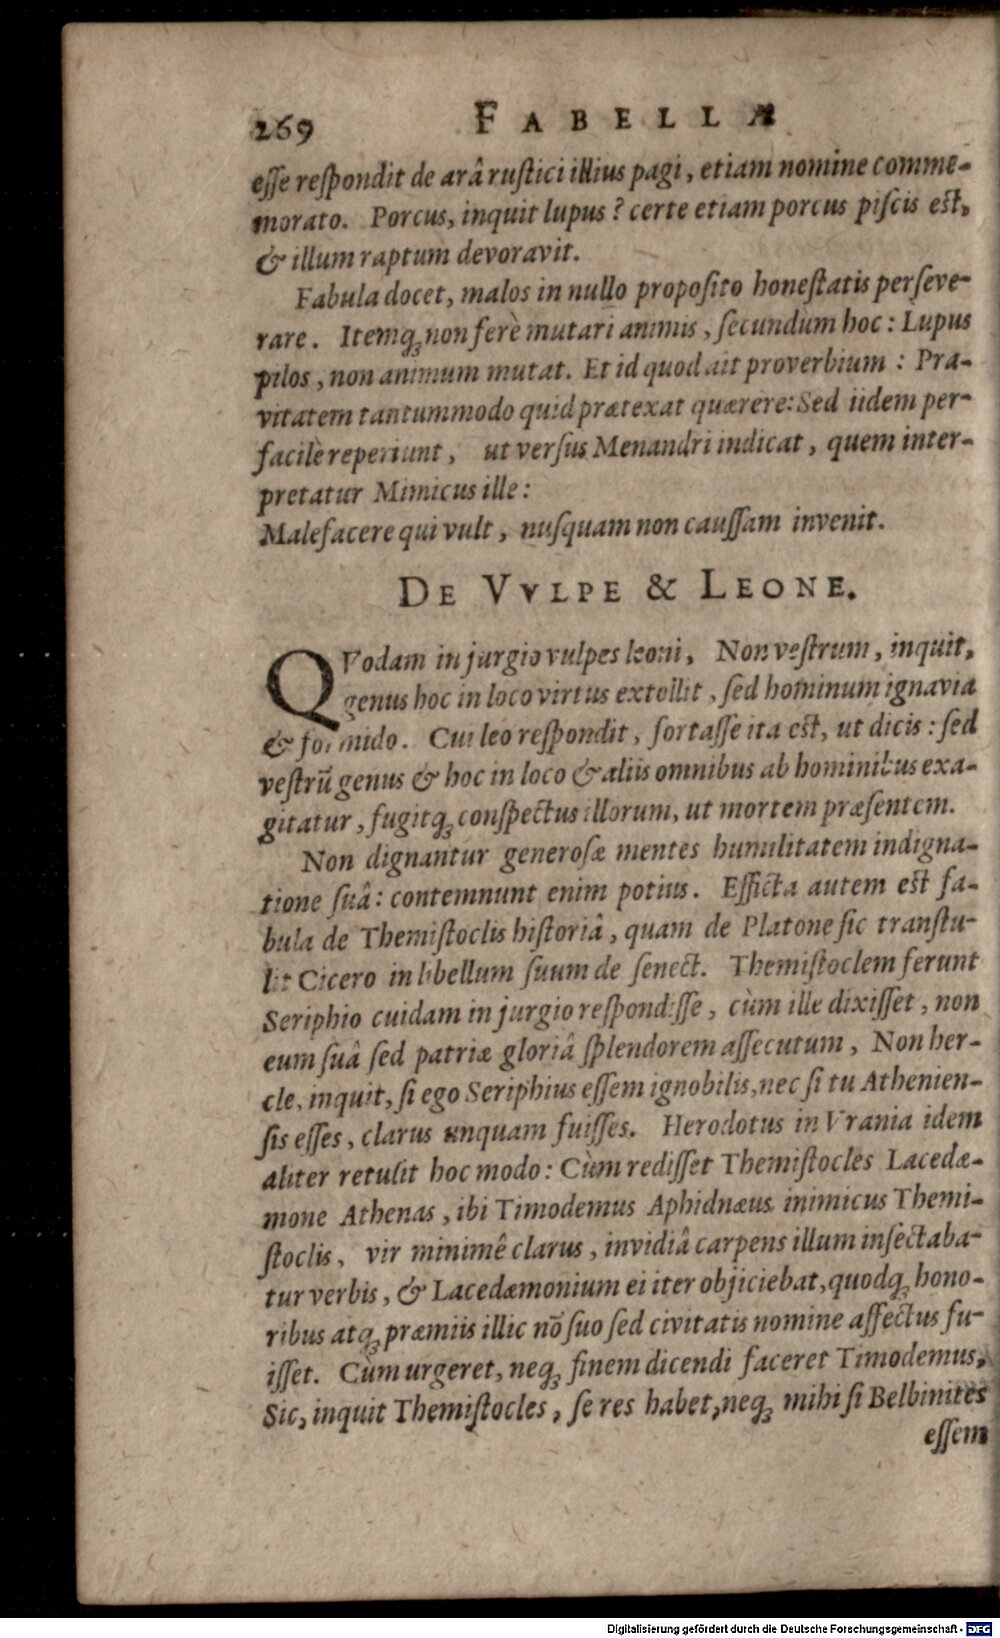 269 FABELLÆ
esse respondit de arâ rustici illius pagi, etiam nomine comme-
morato. Porcus, inquit lupus? certe etiam porcus piscis est,
& illum raptum devoravit.
Fabula docet, malos in nullo proposito honestatis perseve-
rare. Itemq́ꝫ non ferè mutari animis, secundum hoc: Lupus
pilos, non animum mutat. Et id quod ait proverbium: Pra-
vitatem tantummodo quid prætexat quærere: Sed iidem per-
facilè reperiunt, ut versus Menandri indicat, quem inter-
pretatur Mimicus ille:
Malefacere qui vult, nusquam non caussam invenit.
DE VVLPE & LEONE.
QVodam in jurgio vulpes leoni, Non vestrum, inquit,
genus hoc in loco virtus extollit, sed hominum ignavia
& formido. Cui leo respondit, fortasse ita est, ut dicis: sed
vestrũ genus & hoc in loco & aliis omnibus ab hominibus exa-
gitatur, fugitq́ꝫ conspectus illorum, ut mortem præsentem.
Non dignantur generosæ mentes humilitatem indigna-
tione suâ: contemnunt enim potius. Efficta autem est fa-
bula de Themistoclis historiâ, quam de Platone sic transtu-
lit Cicero in libellum suum de senect. Themistoclem ferunt
Seriphio cuidam in jurgio respondisse, cùm ille dixisset, non
eum suâ sed patriæ gloriâ splendorem assecutum, Non her-
cle, inquit, si ego Seriphius essem ignobilis, nec si tu Athenien-
sis esses, clarus unquam fuisses. Herodotus in Vrania idem
aliter retulit hoc modo: Cùm redisset Themistocles Lacedæ-
mone Athenas, ibi Timodemus Aphidnæus inimicus Themi-
stoclis, vir minimê clarus, invidiâ carpens illum insectaba-
tur verbis, & Lacedæmonium ei iter objiciebat, quodq́ꝫ hono-
ribus atq́ꝫ præmiis illic nõ suo sed civitatis nomine affectus fu-
isset. Cùm urgeret, neq́ꝫ finem dicendi faceret Timodemus,
Sic, inquit Themistocles, se res habet, neq́ꝫ mihi si Belbinites
essem
Digitalisierung gefördert durch die Deutsche Forschungsgemeinschaft - DFG